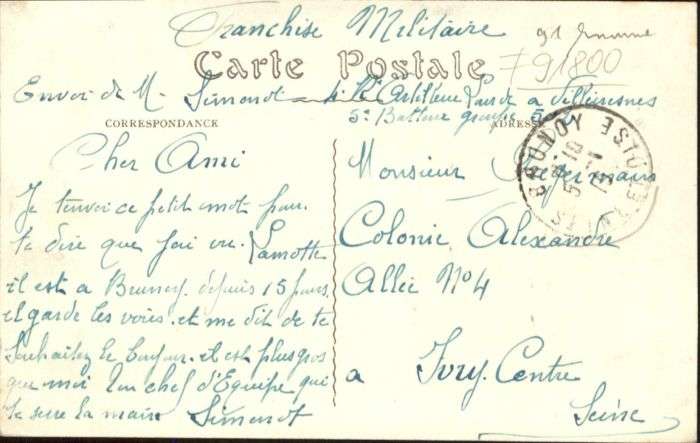 Franchise Militaire
91
91800
Carte Postale
Envoi de M. Simonot 1r Artillerie Lourde a Villecresnes
5e Batterie groupe
CORRESPONDANCE
ADRESSE
BRUNOY
SEINE-ET-OISE
Cher Ami
Je t'envoi ce petit mot pour
te dire que jai vu Lamotte
il est a Brunoy depuis 15 jours
il garde les voies et me dit de te
souhaiter le bonjour il est plus gros
que moi Ton chef d'Equipe qui
te serre la main Simonot
Monsieur
Colonie Alexandre
Allée No 4
a Ivry. Centre
Seine